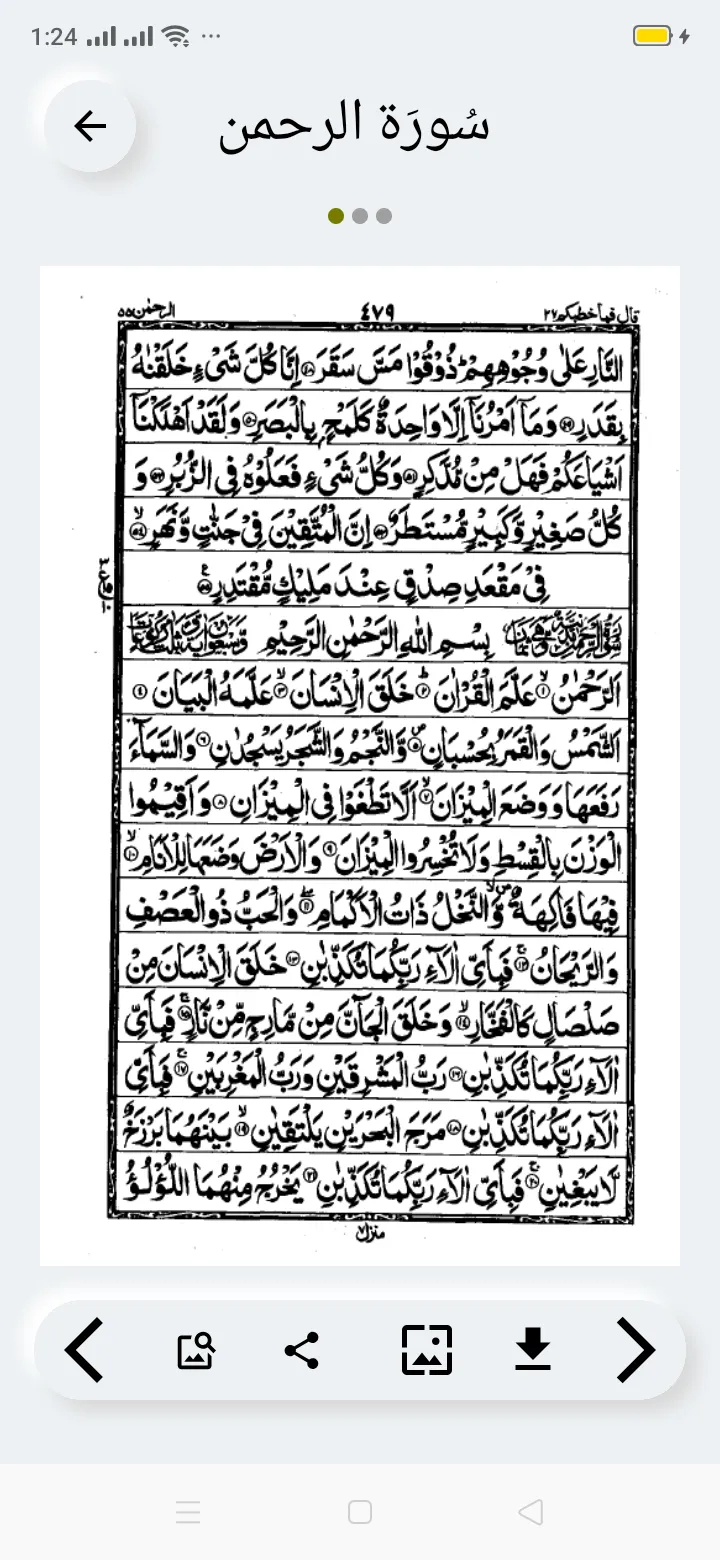 1:24
سُورَة الرحمن
قال فما خطبكم ٢٧
٤٧٩
الرحمٰن ٥٥
النَّارِ عَلٰى وُجُوْهِهِمْ ؕ ذُوْقُوْا مَسَّ سَقَرَ ﴿۴۸﴾ اِنَّا كُلَّ شَیْءٍ خَلَقْنٰهُ
بِقَدَرٍ ﴿۴۹﴾ وَمَاۤ اَمْرُنَاۤ اِلَّا وَاحِدَةٌ كَلَمْحٍۭ بِالْبَصَرِ ﴿۵۰﴾ وَلَقَدْ اَهْلَكْنَاۤ
اَشْیَاعَكُمْ فَهَلْ مِنْ مُّدَّكِرٍ ﴿۵۱﴾ وَكُلُّ شَیْءٍ فَعَلُوْهُ فِی الزُّبُرِ ﴿۵۲﴾ وَ
كُلُّ صَغِیْرٍ وَّكَبِیْرٍ مُّسْتَطَرٌ ﴿۵۳﴾ اِنَّ الْمُتَّقِیْنَ فِیْ جَنّٰتٍ وَّنَهَرٍ ﴿۵۴﴾ ۙ
فِیْ مَقْعَدِ صِدْقٍ عِنْدَ مَلِیْكٍ مُّقْتَدِرٍ ﴿۵۵﴾
بِسْمِ اللهِ الرَّحْمٰنِ الرَّحِیْمِ
اَلرَّحْمٰنُ ﴿۱﴾ ۙ عَلَّمَ الْقُرْاٰنَ ﴿۲﴾ ؕ خَلَقَ الْاِنْسَانَ ﴿۳﴾ ۙ عَلَّمَهُ الْبَیَانَ ﴿۴﴾
اَلشَّمْسُ وَالْقَمَرُ بِحُسْبَانٍ ﴿۵﴾ وَّالنَّجْمُ وَالشَّجَرُ یَسْجُدٰنِ ﴿۶﴾ وَالسَّمَآءَ
رَفَعَهَا وَوَضَعَ الْمِیْزَانَ ﴿۷﴾ ۙ اَلَّا تَطْغَوْا فِی الْمِیْزَانِ ﴿۸﴾ وَاَقِیْمُوا
الْوَزْنَ بِالْقِسْطِ وَلَا تُخْسِرُوا الْمِیْزَانَ ﴿۹﴾ وَالْاَرْضَ وَضَعَهَا لِلْاَنَامِ ﴿۱۰﴾ ۙ
فِیْهَا فَاكِهَةٌ وَّالنَّخْلُ ذَاتُ الْاَكْمَامِ ﴿۱۱﴾ وَالْحَبُّ ذُو الْعَصْفِ
وَالرَّیْحَانُ ﴿۱۲﴾ ۚ فَبِاَیِّ اٰلَآءِ رَبِّكُمَا تُكَذِّبٰنِ ﴿۱۳﴾ خَلَقَ الْاِنْسَانَ مِنْ
صَلْصَالٍ كَالْفَخَّارِ ﴿۱۴﴾ ۙ وَخَلَقَ الْجَآنَّ مِنْ مَّارِجٍ مِّنْ نَّارٍ ﴿۱۵﴾ ۚ فَبِاَیِّ
اٰلَآءِ رَبِّكُمَا تُكَذِّبٰنِ ﴿۱۶﴾ رَبُّ الْمَشْرِقَیْنِ وَرَبُّ الْمَغْرِبَیْنِ ﴿۱۷﴾ ۚ فَبِاَیِّ
اٰلَآءِ رَبِّكُمَا تُكَذِّبٰنِ ﴿۱۸﴾ مَرَجَ الْبَحْرَیْنِ یَلْتَقِیٰنِ ﴿۱۹﴾ ۙ بَیْنَهُمَا بَرْزَخٌ
لَّا یَبْغِیٰنِ ﴿۲۰﴾ ۚ فَبِاَیِّ اٰلَآءِ رَبِّكُمَا تُكَذِّبٰنِ ﴿۲۱﴾ یَخْرُجُ مِنْهُمَا اللُّؤْلُؤُ
منزل ٧